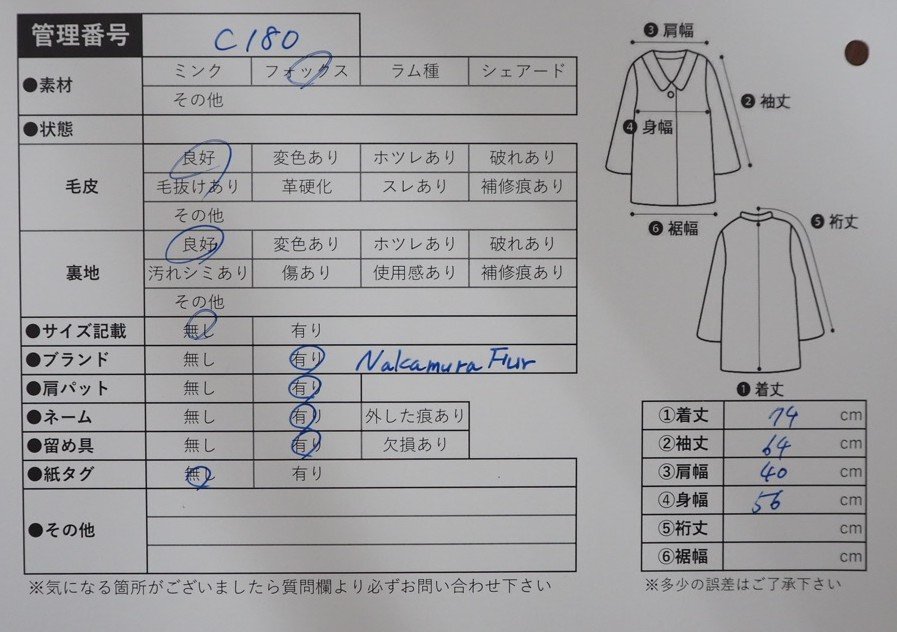 管理番号 C180
●素材 ミンク フォックス ラム種 シェアード
その他
●状態
毛皮 良好 変色あり ホツレあり 破れあり
毛抜けあり 革硬化 スレあり 補修痕あり
その他
裏地 良好 変色あり ホツレあり 破れあり
汚れシミあり 傷あり 使用感あり 補修痕あり
その他
●サイズ記載 無し 有り
●ブランド 無し 有り Nakamura Fur
●肩パット 無し 有り
●ネーム 無し 有り 外した痕あり
●留め具 無し 有り 欠損あり
●紙タグ 無し 有り
●その他
※気になる箇所がございましたら質問欄より必ずお問い合わせ下さい
❸肩幅
❷袖丈
❹身幅
❻裾幅
❺裄丈
❶着丈
①着丈 74 cm
②袖丈 64 cm
③肩幅 40 cm
④身幅 56 cm
⑤裄丈 cm
⑥裾幅 cm
※多少の誤差はご了承下さい